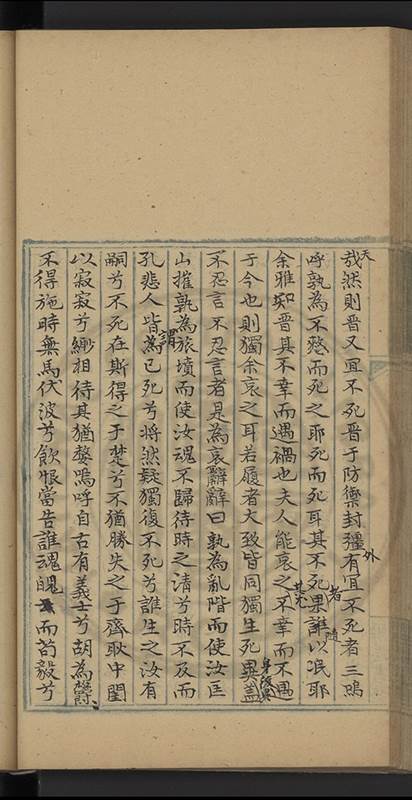 哉然則晋又宜不死晋于防禦封疆有宜不死者三嗚
呼孰為不愁而死之耶死而死耳其不死果誰以泯耶
余雅知晋其不幸而遇禍也夫人能哀之不幸而不遇
于今也則獨余哀之耳若履者大致皆同獨生死異蓋
不忍言不忍言者是為哀辭辭曰孰為亂階而使汝匡
山摧孰為旅墳而使汝魂不歸待時之清兮時不及而
孔悲人皆為已死兮將然疑獨復不死兮誰生之汝有
嗣兮不死在斯得之于楚兮不猶勝失之于齊耿中閨
以寂寂兮縐相待其猶嫠嗚呼自古有義士兮胡為
不得施時無馬伏波兮飲恨當告誰魂魄而苟毅兮
天
外
者
隨
其死
身後異
謂